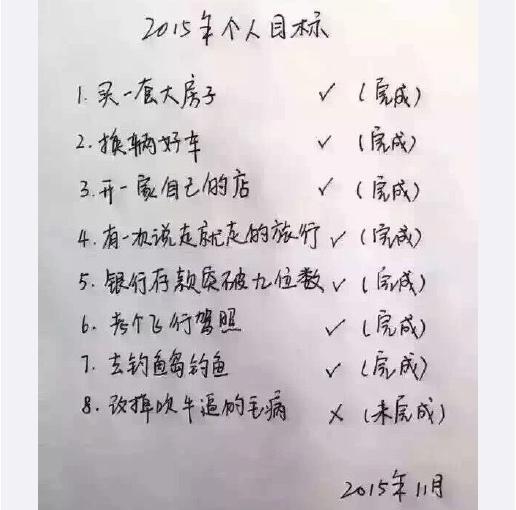 2015年个人目标
1. 买一套大房子 ✓ (完成)
2. 换辆好车 ✓ (完成)
3. 开一家自己的店 ✓ (完成)
4. 有一次说走就走的旅行 ✓ (完成)
5. 银行存款突破九位数 ✓ (完成)
6. 考个飞行驾照 ✓ (完成)
7. 去钓鱼岛钓鱼 ✓ (完成)
8. 改掉吹牛逼的毛病 ✗ (未完成)
2015年11月